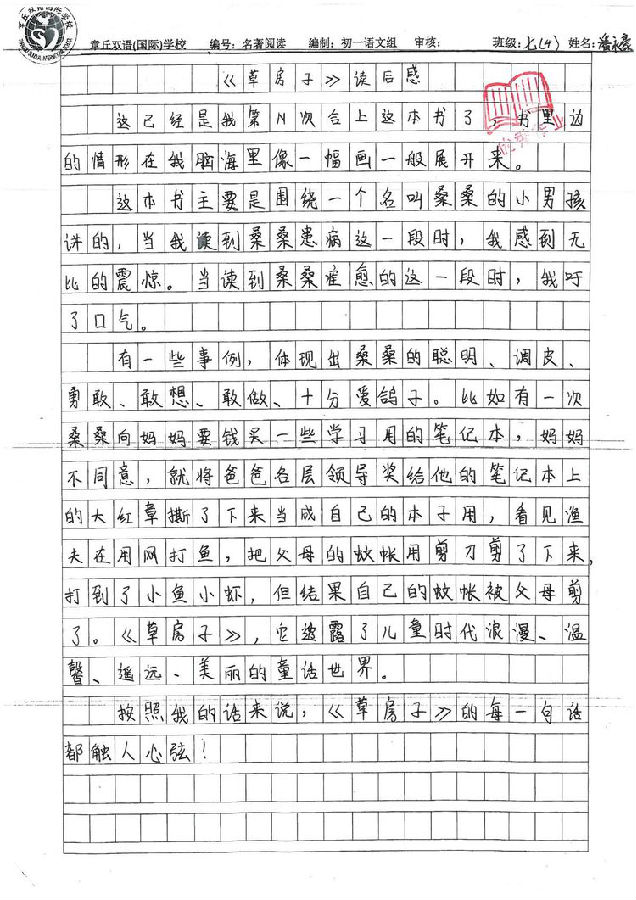 章丘双语(国际)学校 编号:名著阅读 编制:初一语文组 审核: 班级:七(4) 姓名:
《草房子》读后感
这已经是我第N次合上这本书了,书里边
的情形在我脑海里像一幅画一般展开来。
这本书主要是围绕一个名叫桑桑的小男孩
讲的,当我读到桑桑患病这一段时,我感到无
比的震惊。当读到桑桑痊愈的这一段时,我吁
了口气。
有一些事例,体现出桑桑的聪明、调皮、
勇敢、敢想、敢做、十分爱鸽子。比如有一次
桑桑向妈妈要钱买一些学习用的笔记本,妈妈
不同意,就将爸爸各层领导奖给他的笔记本上
的大红章撕了下来当成自己的本子用,看见渔
夫在用网打鱼,把父母的蚊帐用剪刀剪了下来,
打到了小鱼小虾,但结果自己的蚊帐被父母剪
了。《草房子》,它透露了儿童时代浪漫、温
馨、遥远、美丽的童话世界。
按照我的话来说,《草房子》的每一句话
都触人心弦!